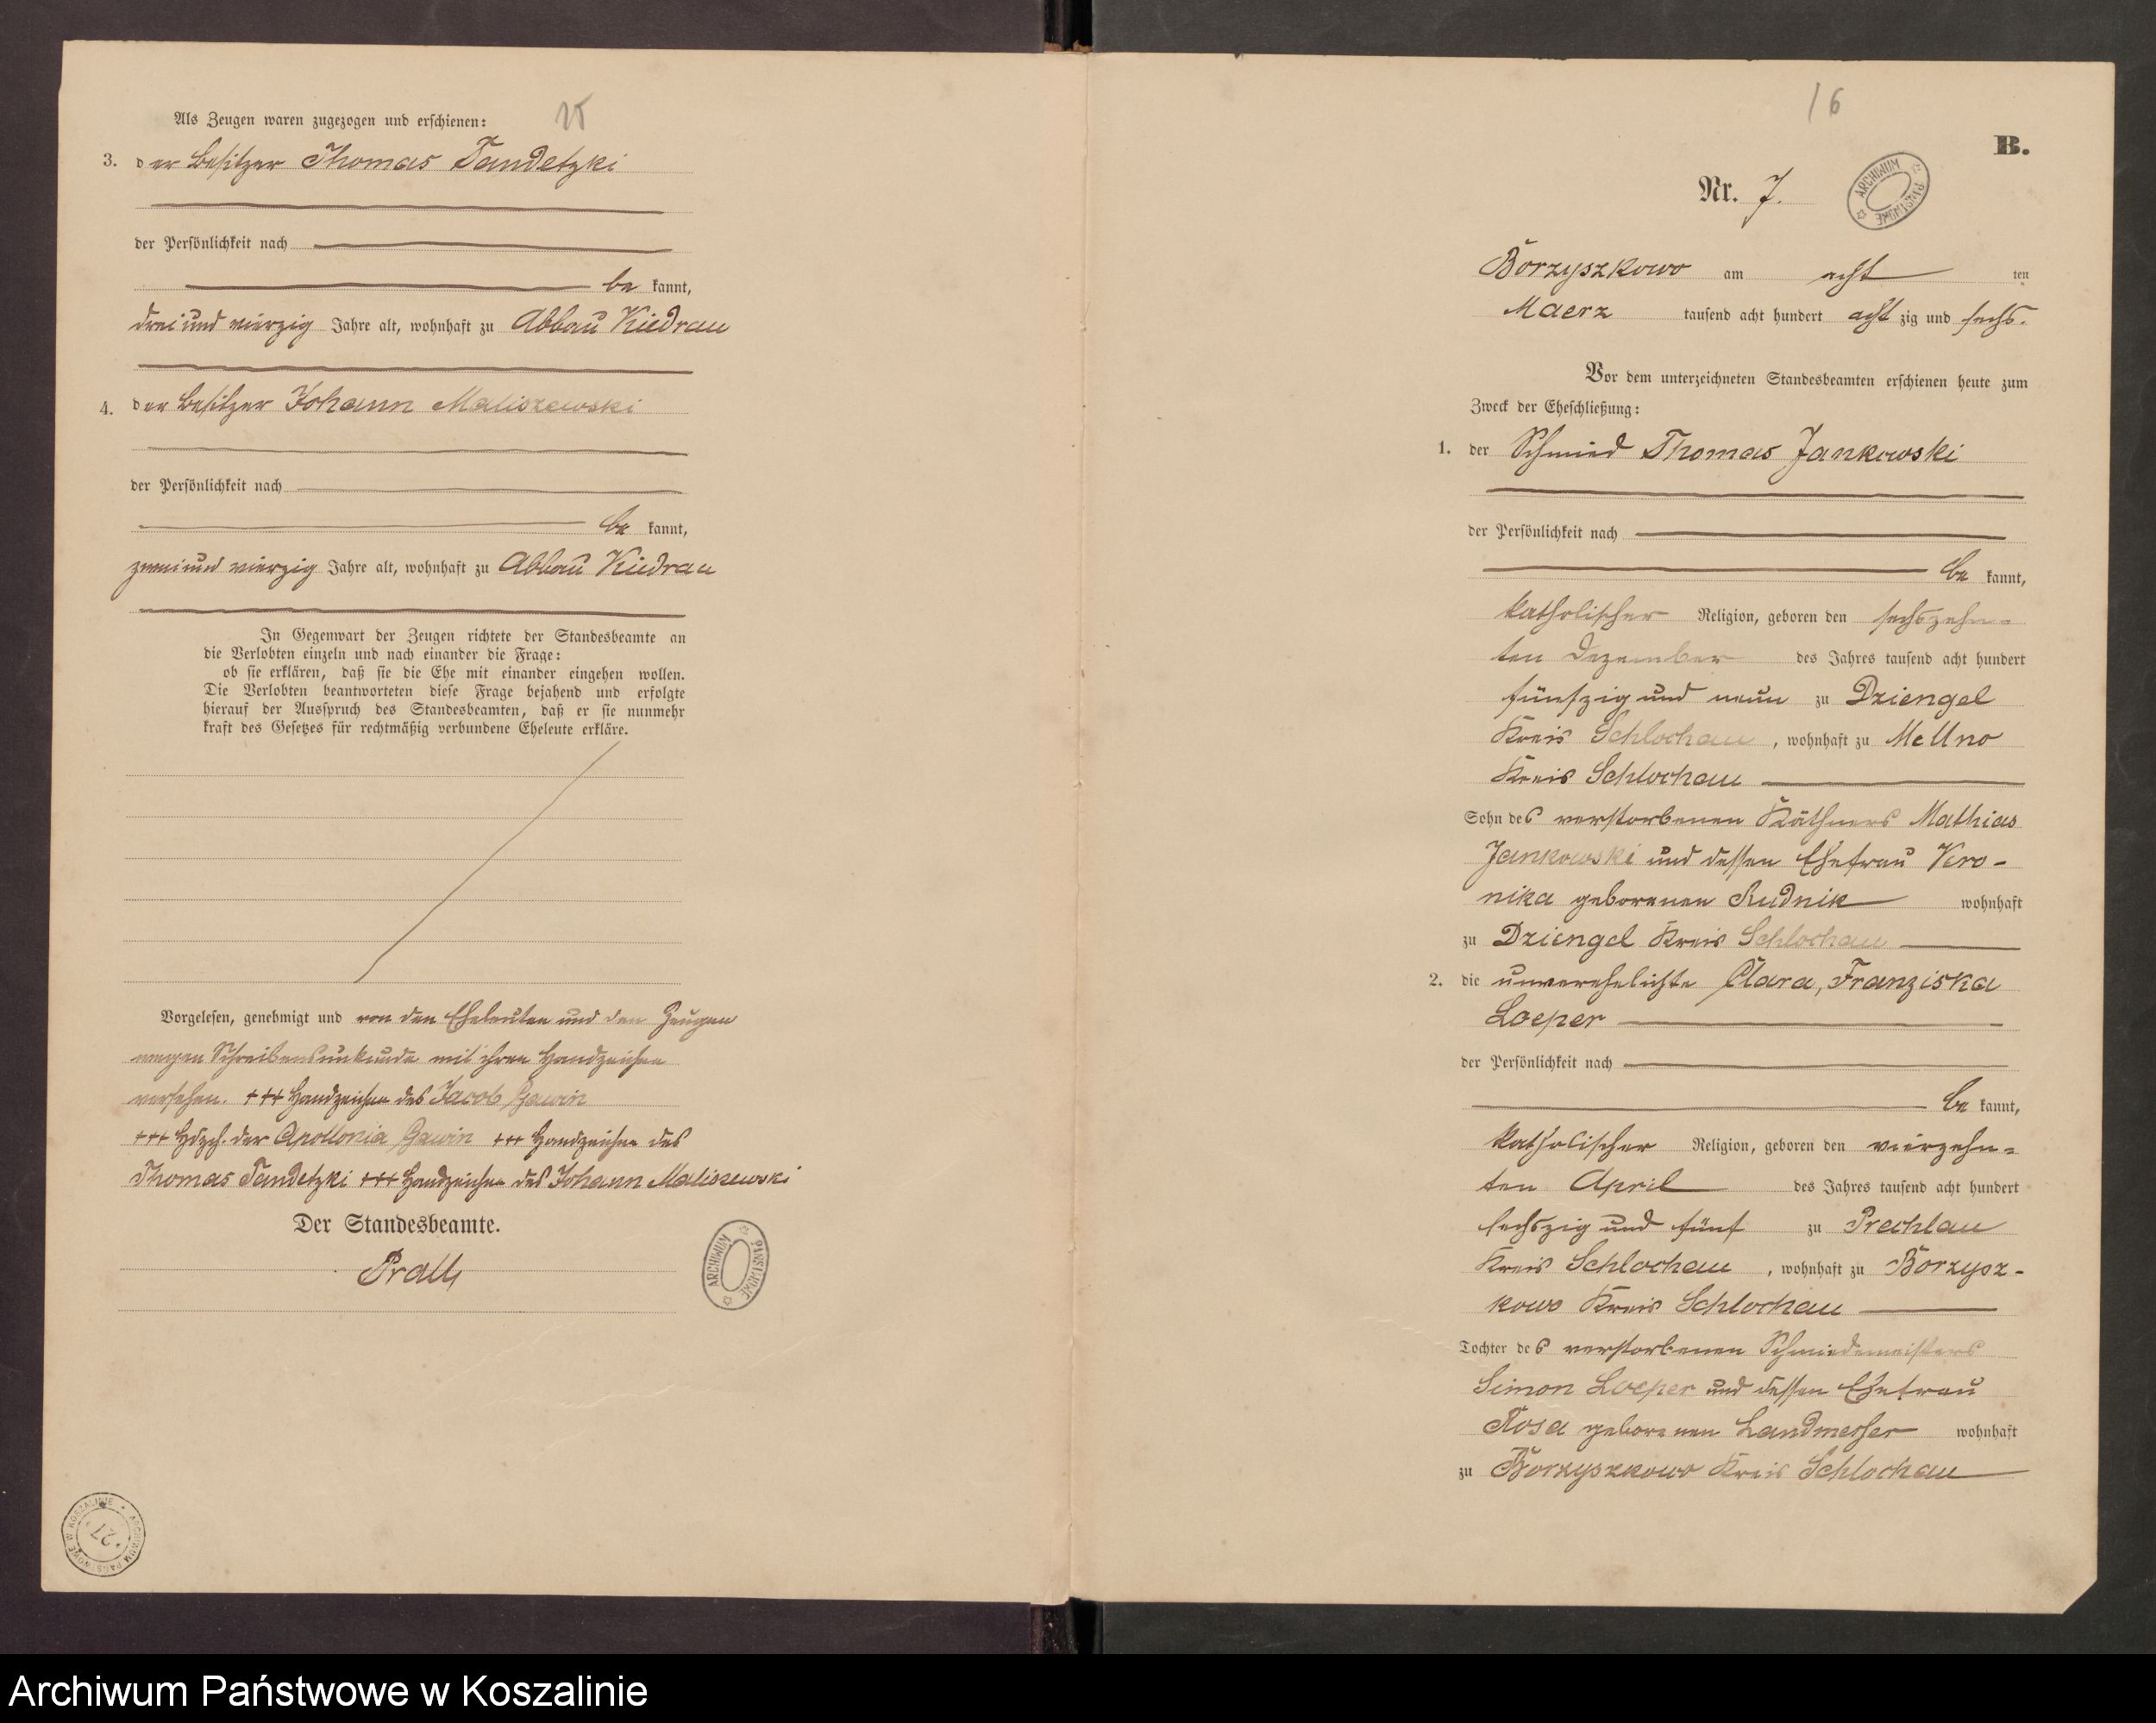 15
Als Zeugen waren zugezogen und erschienen:
3. der Besitzer Thomas Tandetzki
der Persönlichkeit nach
be kannt,
drei und vierzig Jahre alt, wohnhaft zu Abbau Kiedrau
4. der Besitzer Johann Maliszewski
der Persönlichkeit nach
be kannt,
zwei und vierzig Jahre alt, wohnhaft zu Abbau Kiedrau
In Gegenwart der Zeugen richtete der Standesbeamte an
die Verlobten einzeln und nach einander die Frage:
ob sie erklären, daß sie die Ehe mit einander eingehen wollen.
Die Verlobten beantworteten diese Frage bejahend und erfolgte
hierauf der Ausspruch des Standesbeamten, daß er sie nunmehr
kraft des Gesetzes für rechtmäßig verbundene Eheleute erkläre.
Vorgelesen, genehmigt und von den Eheleuten und den Zeugen
wegen Schreibensunkunde mit ihren Handzeichen
versehen. +++ Handzeichen des Jacob Gawin
+++ Hdzch. der Apollonia Gawin +++ Handzeichen des
Thomas Tandetzki +++ Handzeichen des Johann Maliszewski
Der Standesbeamte.
Prall
ARCHIWUM PAŃSTWOWE
ARCHIWUM PAŃSTWOWE W KOSZALINIE
27
16
B.
Nr. 7.
ARCHIWUM PAŃSTWOWE
Borzyszkowo am acht ten
Maerz tausend acht hundert acht zig und sechs.
Vor dem unterzeichneten Standesbeamten erschienen heute zum
Zweck der Eheschließung:
1. der Schmied Thomas Jankowski
der Persönlichkeit nach
be kannt,
katholischer Religion, geboren den sechszehn-
ten Dezember des Jahres tausend acht hundert
fünfzig und neun zu Dziengel
Kreis Schlochau, wohnhaft zu Mellno
Kreis Schlochau
Sohn des verstorbenen Käthners Mathias
Jankowski und dessen Ehefrau Vero-
nika geborenen Rudnik wohnhaft
zu Dziengel Kreis Schlochau
2. die unverehelichte Clara, Franziska
Loeper
der Persönlichkeit nach
be kannt,
katholischer Religion, geboren den vierzehn-
ten April des Jahres tausend acht hundert
sechszig und fünf zu Prechlau
Kreis Schlochau, wohnhaft zu Borzysz-
kowo Kreis Schlochau
Tochter des verstorbenen Schmiedemeisters
Simon Loeper und dessen Ehefrau
Rosa geborenen Landmesser wohnhaft
zu Borzyszkowo Kreis Schlochau
Archiwum Państwowe w Koszalinie